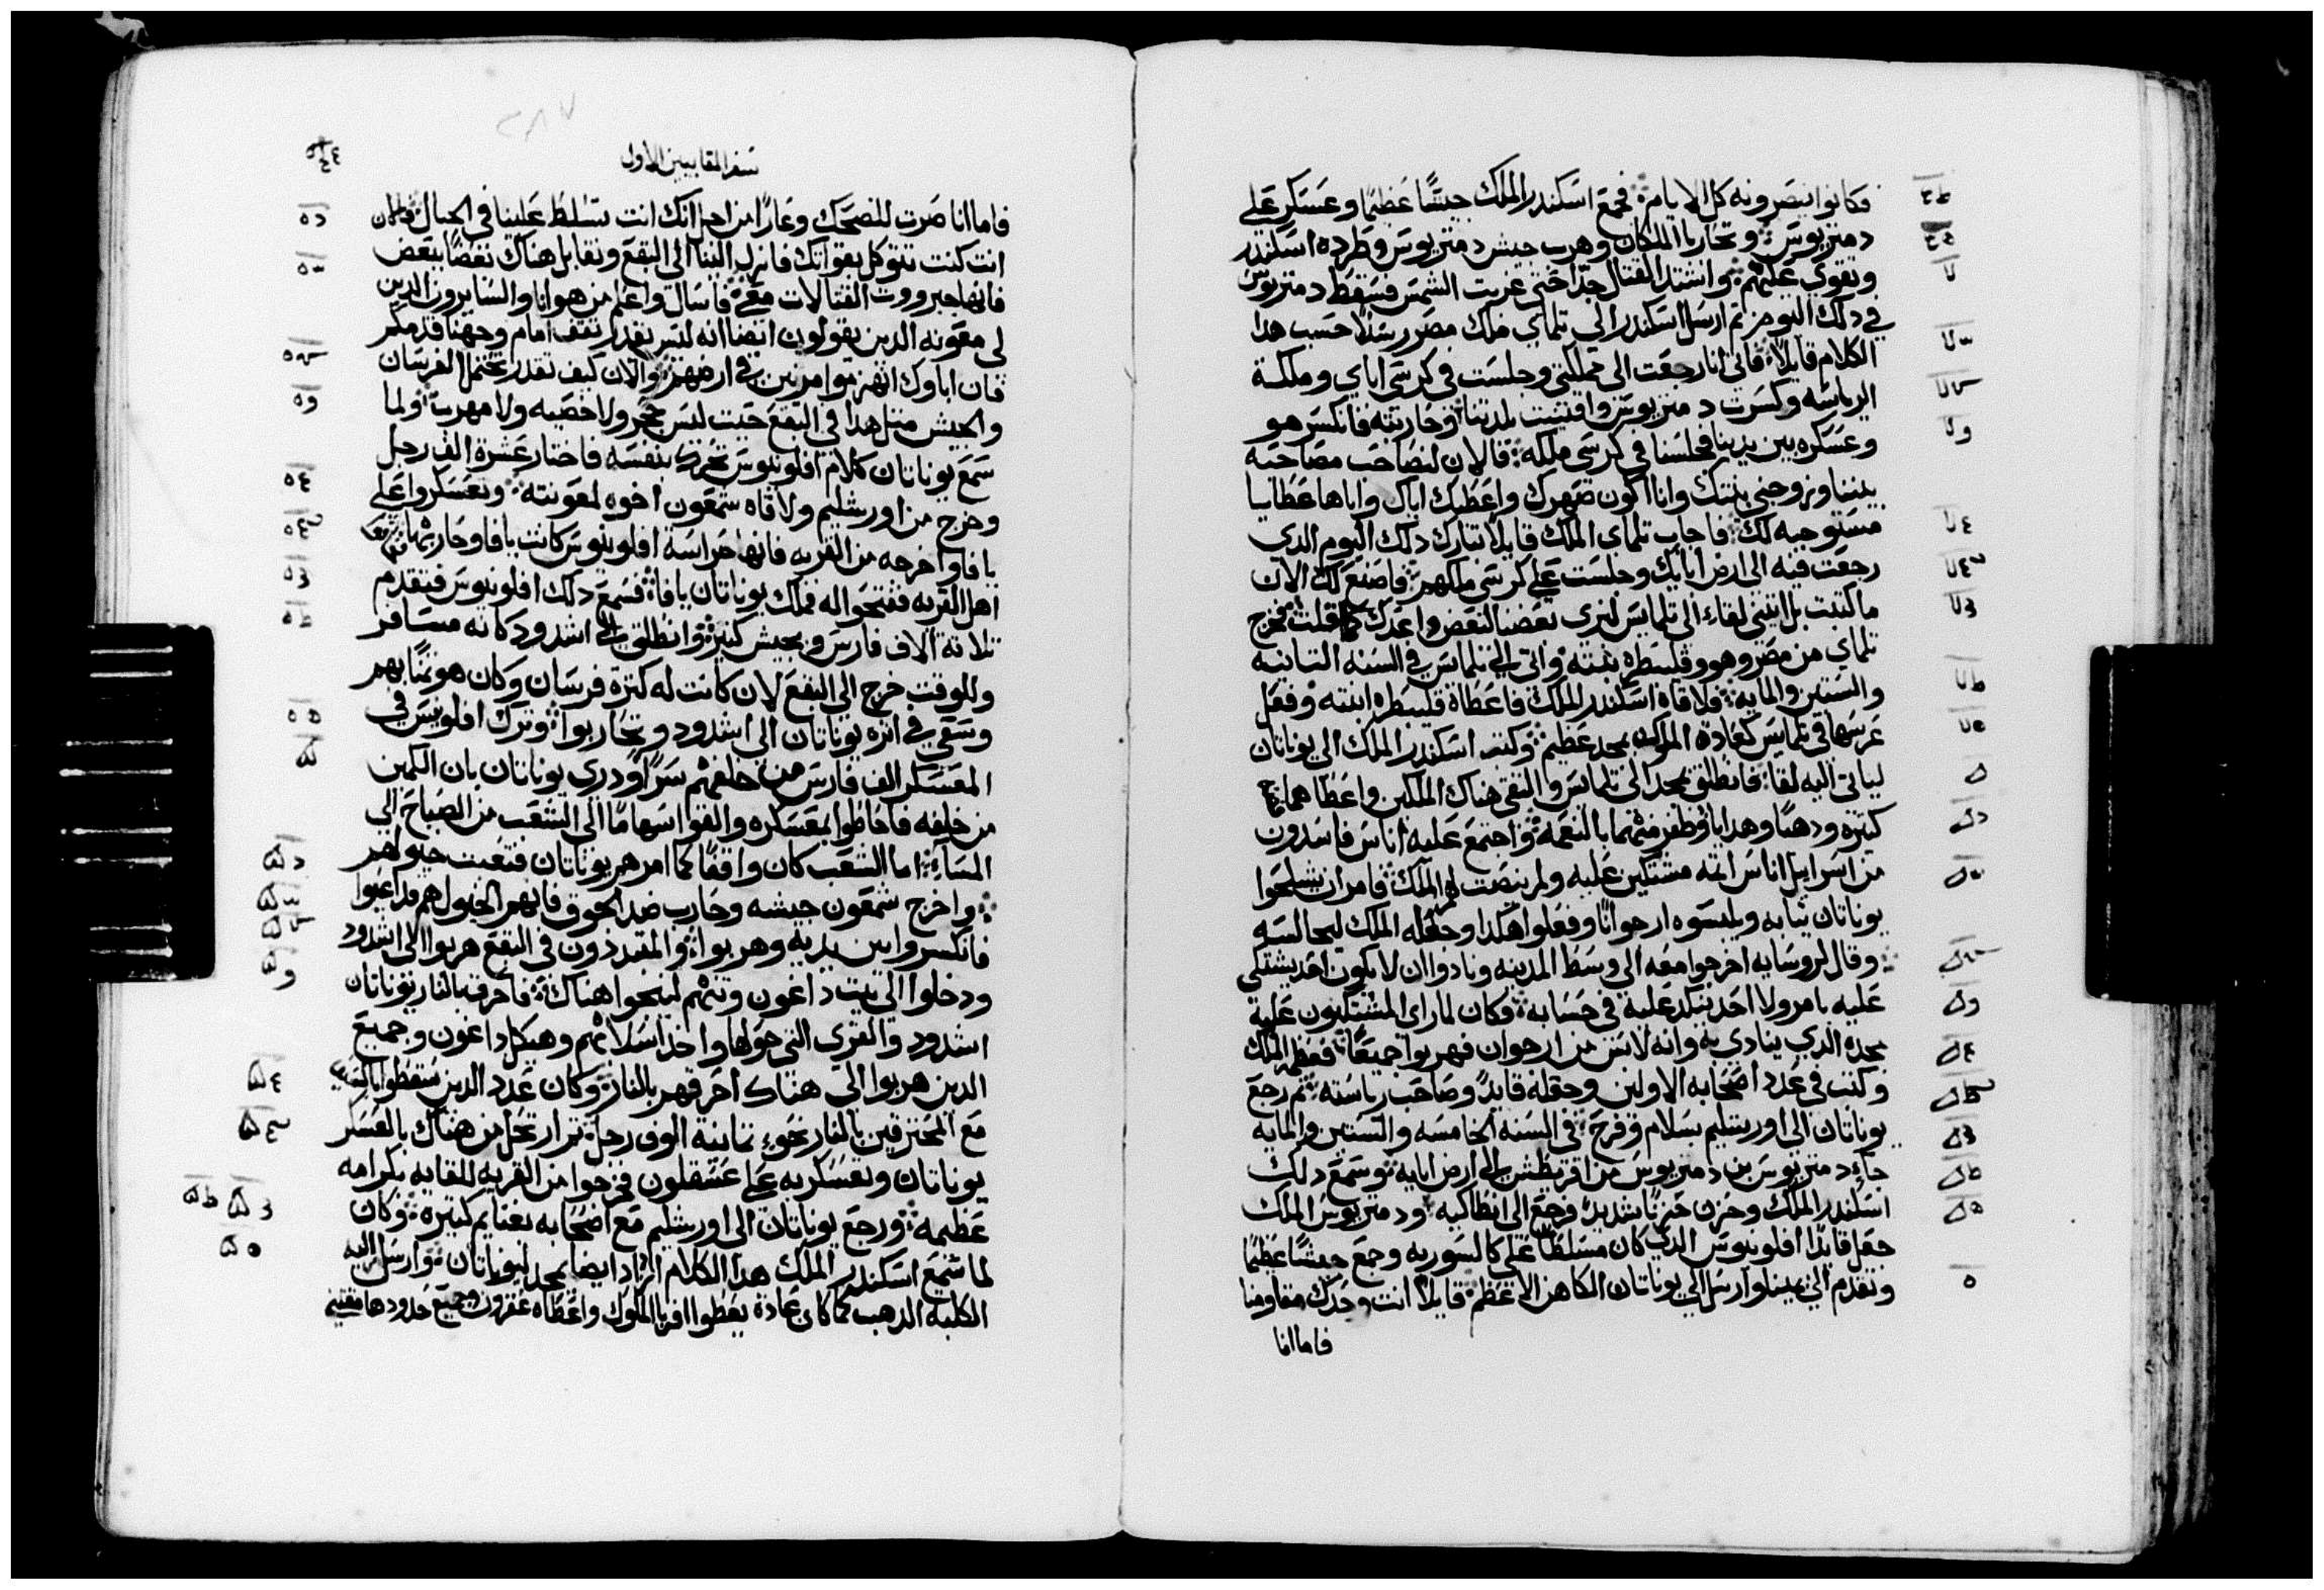 فكانوا ينصرونه كل الايام فجمع اسكندر الملك جيشًا عظيمًا وعسكر على
دمتريوس وتحاربا الملكان وهرب جيش دمتريوس وطرده اسكندر
وتقوي عليهم واشتد القتال جدًا حتى غربت الشمس فسقط دمتريوس
في ذلك اليوم ثم ارسل اسكندر الى تلماي ملك مصر رسلاً حسب هدا
الكلام قايلاً فاني انا رجعت الى مملكتي وجلست في كرسي اباي وملكت
الرياسه وكسرت دمتريوس واقتنيت بلدتنا وحاربته فانكسر هو
وعسكره بين يدينا فجلسنا في كرسي ملكه فالان لنصاحب مصاحبه
بيننا وزوجني بنتك وانا اكون صهرك واعطيك اياك واياها عطايا
مستوجبه لك فاجاب تلماي الملك قايلاً تبارك دلك اليوم الدي
رجعت فيه الى ارض ابايك وجلست على كرسي ملكهم فاصنع لك الان
ما كتبت بل ايتني لقاء الى تلمايس لنرى بعضنا لبعض واعدك كما قلت فخرج
تلماي من مصر وهو وقلبطره بنته واتى الى تلمايس في السنه التانيه
والستين والمايه فلاقاه اسكندر الملك فاعطاه قلبطره ابنته وفعل
عرسها في تلمايس كعادة الملوك بمجد عظيم وكتب اسكندر الملك الى يوناتان
لياتي اليه لقا فانطلق بمجد الى تلمايس والتقى هناك الملكين واعطاهما
كتيره ودهبًا وهدايا وظفر منهما بالنعمه واجتمع عليه اناس فاسدون
من اسراييل اناس اتمه مشتكين عليه ولم ينصت لهم الملك فامر ان يشلحوا
يوناتان تيابه ويلبسوه ارجوانًا وفعلوا هكدا وجعله الملك ليجالسه
وقال لروسايه اخرجوا معه الى وسط المدينه ونادوا ان لا يكون احد يشتكى
عليه بامر ولا احد ينكد عليه في حسابه وكان لما راى المشتكيون عليه
مجده الدي ينادى به وانه لابس من ارجوان فهربوا جميعًا فعظمه الملك
وكتب في عدد اصحابه الاولين وجعله قايدً وصاحب رياسته ثم رجع
يوناتان الى اورشليم بسلام وفرح في السنه الخامسه والستين والمايه
جاء دمتريوس بن دمتريوس من اقريطش الى ارض ابايه وسمع دلك
اسكندر الملك وحزن حزنًا شديدً فرجع الى انطاكيه ودمتريوس الملك
جعل قايدًا افلونيوس الدي كان مسلطًا على كالسوريه وجمع جيشًا عظيمًا
وتقدم الى يمينا وارسل الى يوناتان الكاهن الاعظم قايلاً انت وحدك مقاومنا
فاما انا
سفر المقابيين الاول
فاما انا صرت للضحك وعارًا من اجل انك انت تتسلط علينا في الجبال فالان
انت كنت تتوكل بقواتك فانزل الينا الى البقع ونقابل هناك بعضًا ببعض
فانها جبروت القتالات معي فاسال واعلم من هو انا والسايرون الدين
لي معونه الدين يقولون ايضا انه ليس يقدر تقف امام وجهنا قدمكم
فان اباوك انهزموا مرتين في ارضهم والان كيف تقدر تحتمل الفرسان
والجيش متل هدا في البقع حيت ليس حجر ولا حصيه ولا مهرب ولما
سمع يوناتان كلام افلونيوس تحرك بنفسه فاختار عشرة الف رجل
وخرج من اورشليم ولاقاه شمعون اخوه لمعونته وتعسكروا على
يافا واخرجه من القريه فانها حراسة افلونيوس كانت يافا وحاربها
اهل القريه ففتحوا له فملك يوناتان يافا فسمع دلك افلونيوس فتقدم
تلاتة الاف فارس وبجيش كتير وانطلق الى اشدود كانه مسافر
وللوقت خرج الى البقع لان كانت له كترة فرسان وكان مومنًا بهم
وسعى في اتره يوناتان الى اشدود وتحاربوا وترك افلونيس في
المعسكر الف فارس من خلفهم سرًا ودري يوناتان بان الكمين
من خلفه فاحاطوا بمعسكره والقوا سهامًا الى الشعب من الصباح الى
المساء اما الشعب كان واقفًا كما امرهم يوناتان فتعبت خيولهم
واخرج شمعون جيشه وحارب ضد الجوق فانهم الخيول هم قد اعيوا
فانكسروا بين يديه وهربوا والمتبددون في البقع هربوا الى اشدود
ودخلوا الى بيت داغون وتنهم لينجوا هناك فاحرق بالنار يوناتان
اشدود والقرى التي حولها واخد اسلابهم وهيكل داغون وجميع
الدين هربوا الى هناك احرقهم بالنار وكان عدد الدين سقطوا بالسيف
مع المحترقين بالنار نحو تمانية الوف رجل تم ارتحل من هناك بالعسكر
يوناتان وتعسكر به على عسقلون فخرجوا من القريه للقايه بكرامه
عظيمه ورجع يوناتان الى اورشليم مع اصحابه بغنايم كتيره وكان
لما سمع اسكندر الملك هدا الكلام ازاد ايضا بمجد ليوناتان وارسل اليه
الكلبه الدهب كما كان عادة يعطوا اقربا الملوك واعطاه عقرون وجميع حدودها مقتنيه